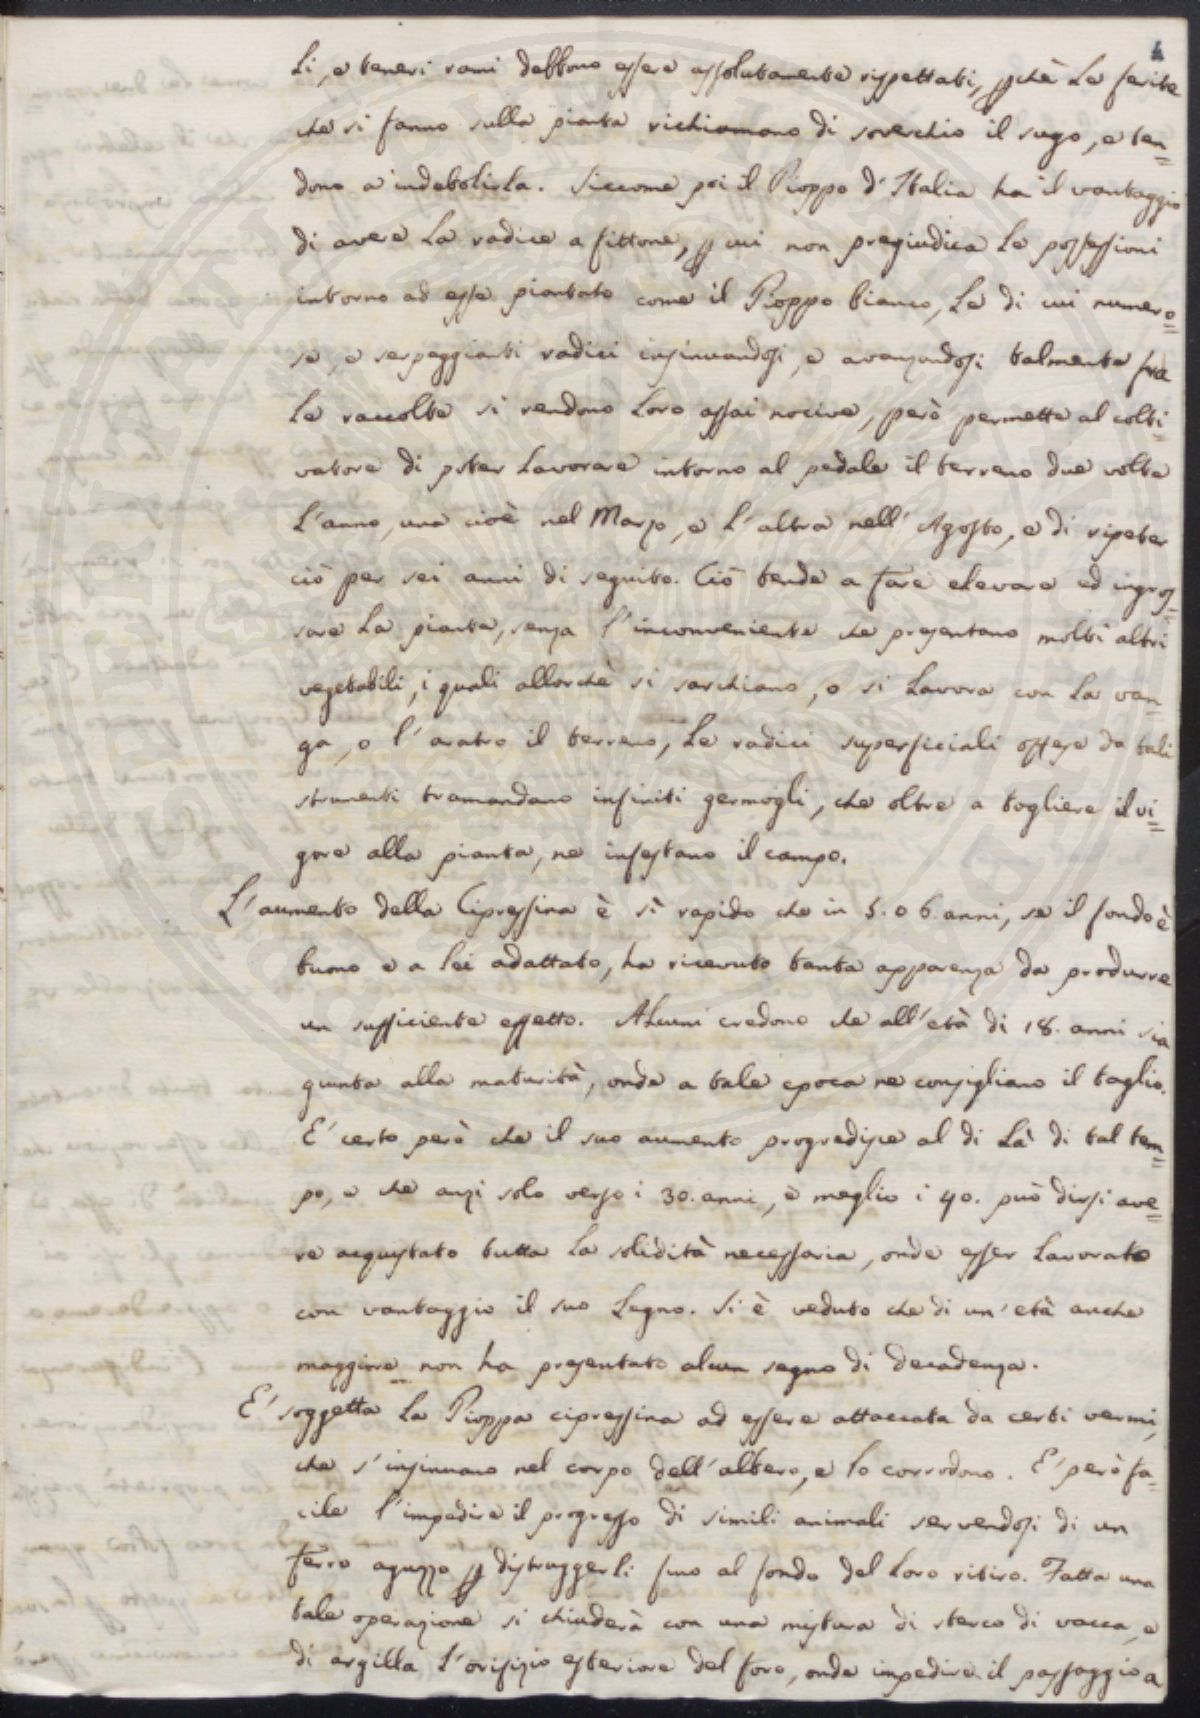 4
li, e teneri rami debbono essere assolutamente rispettati, pchè le ferite
che si fanno sulla pianta richiamano di soverchio il sugo, e ten=
dono a indebolirla. Siccome poi il Pioppo d'Italia ha il vantaggio
di avere la radice a fittone, p cui non pregiudica le possessioni
intorno ad esse piantato come il Pioppo bianco, le di cui numero=
se, e serpeggianti radici insinuandosi, e avanzandosi talmente fra
le raccolte si rendono loro assai nocive, però permette al colti=
vatore di poter lavorare intorno al pedale il terreno due volte
l'anno, una cioè nel Marzo, e l'altra nell'Agosto, e di ripeter
ciò per sei anni di seguito. Ciò tende a fare elevare ed ingros=
sare la pianta, senza l'inconveniente che presentano molti altri
vegetabili, i quali allorchè si sarchiano, o si lavora con la van=
ga, o l'aratro il terreno, le radici superficiali offese da tali
strumenti tramandano infiniti germogli, che oltre a togliere il vi=
gore alla pianta, ne infestano il campo.
L'aumento della Cipressina è sì rapido che in 5. o 6. anni, se il fondo è
buono e a lei adattato, ha ricevuto tanta apparenza da produrre
un sufficiente effetto. Alcuni credono che all'età di 18. anni sia
giunta alla maturità, onde a tale epoca ne consigliano il taglio.
E' certo però che il suo aumento progredisce al di là di tal tem=
po, e che anzi solo verso i 30. anni, e meglio i 40. può dirsi ave=
re acquistato tutta la solidità necessaria, onde esser lavorato
con vantaggio il suo legno. Si è veduto che di un'età anche
maggiore non ha presentato alcun segno di decadenza.
E' soggetta la Pioppa cipressina ad essere attaccata da certi vermi,
che s'insinuano nel corpo dell'albero, e lo corrodono. E' però fa=
cile l'impedire il progresso di simili animali servendosi di un
ferro aguzzo p distruggerli fino al fondo del loro ritiro. Fatta una
tale operazione si chiuderà con una mistura di sterco di vacca, e
di argilla l'orifizio esteriore del foro, onde impedire il passaggio a